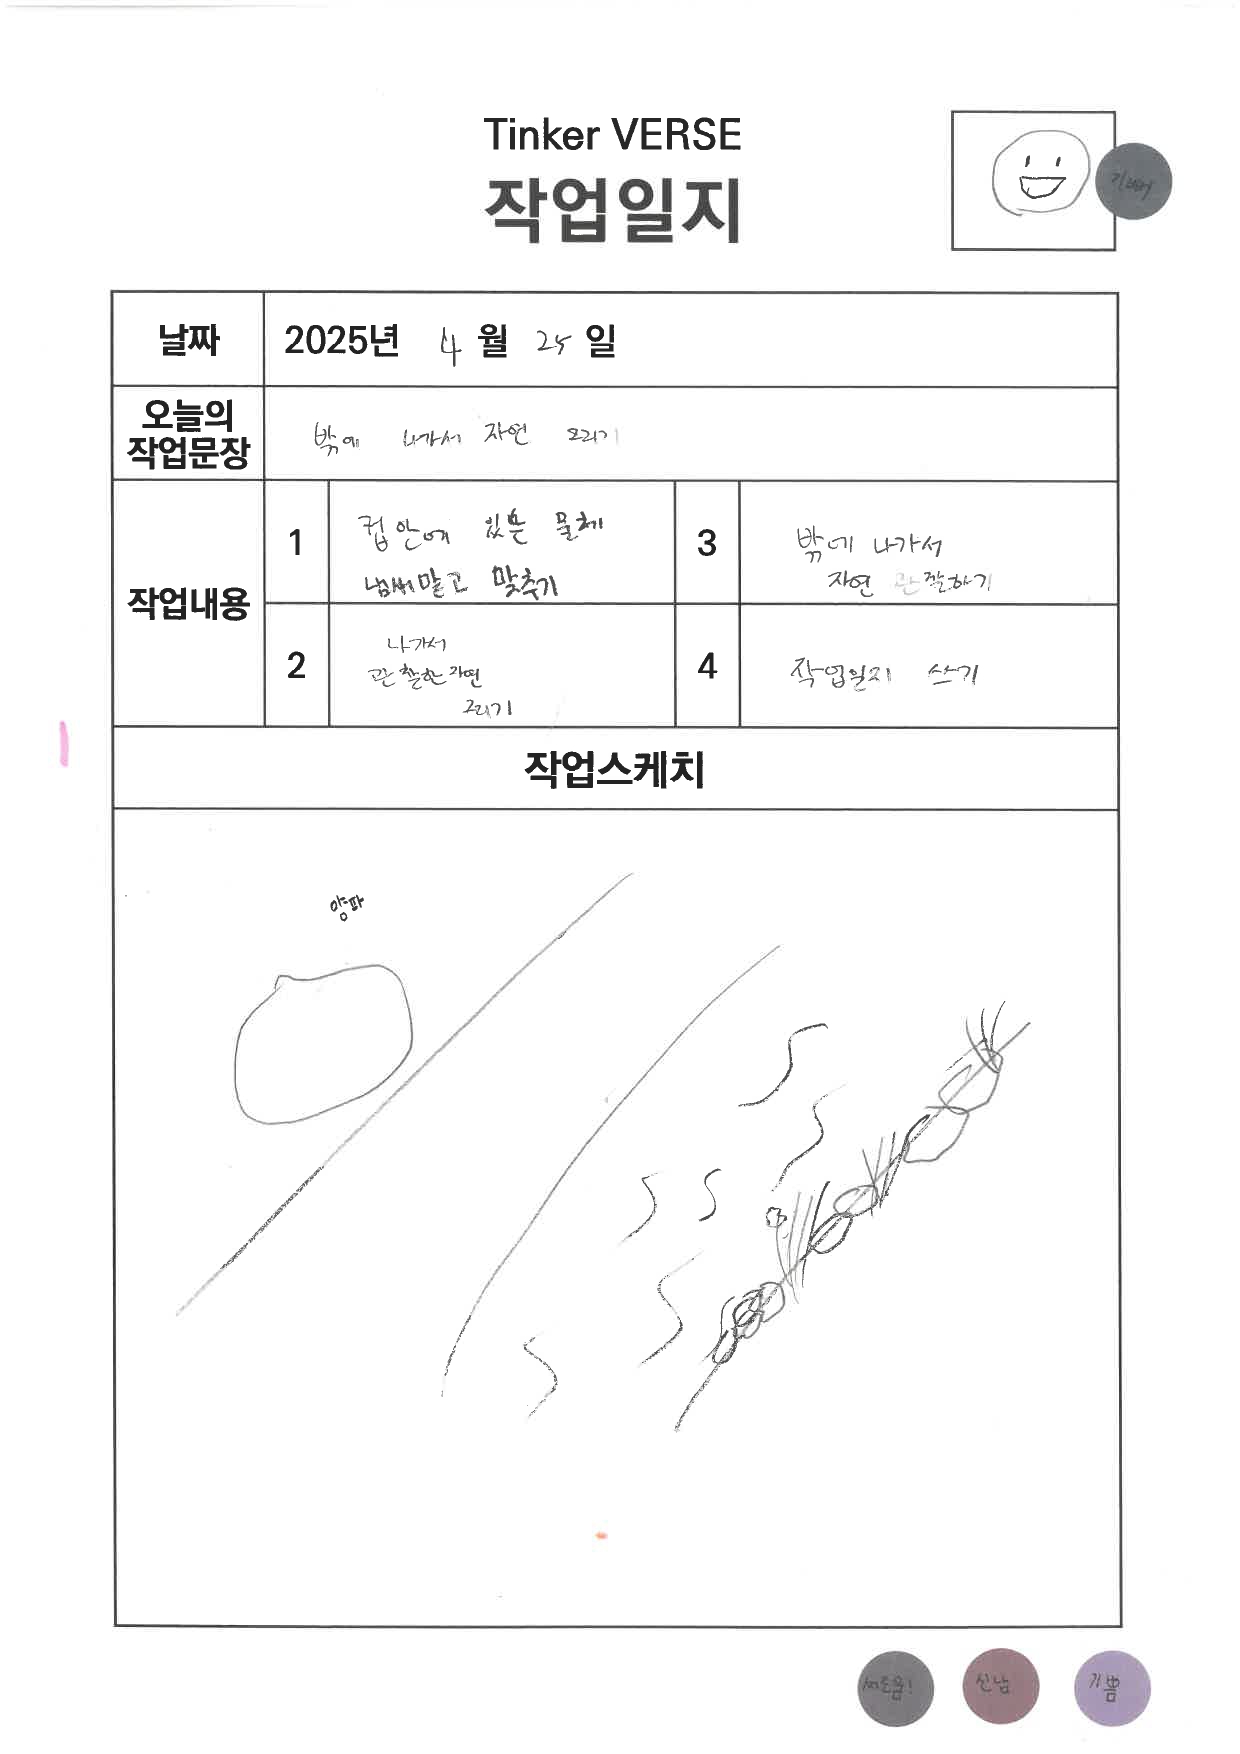 Tinker VERSE
작업일지
기뻐
날짜
2025년 4월 25일
오늘의
작업문장
밖에 나가서 자연 그리기
작업내용
1
컵안에 있는 물체
냄새맡고 맞추기
3
밖에 나가서
자연 관찰하기
2
나가서
관찰한 자연
그리기
4
작업일지 쓰기
작업스케치
양파
새로움!
신남
기쁨